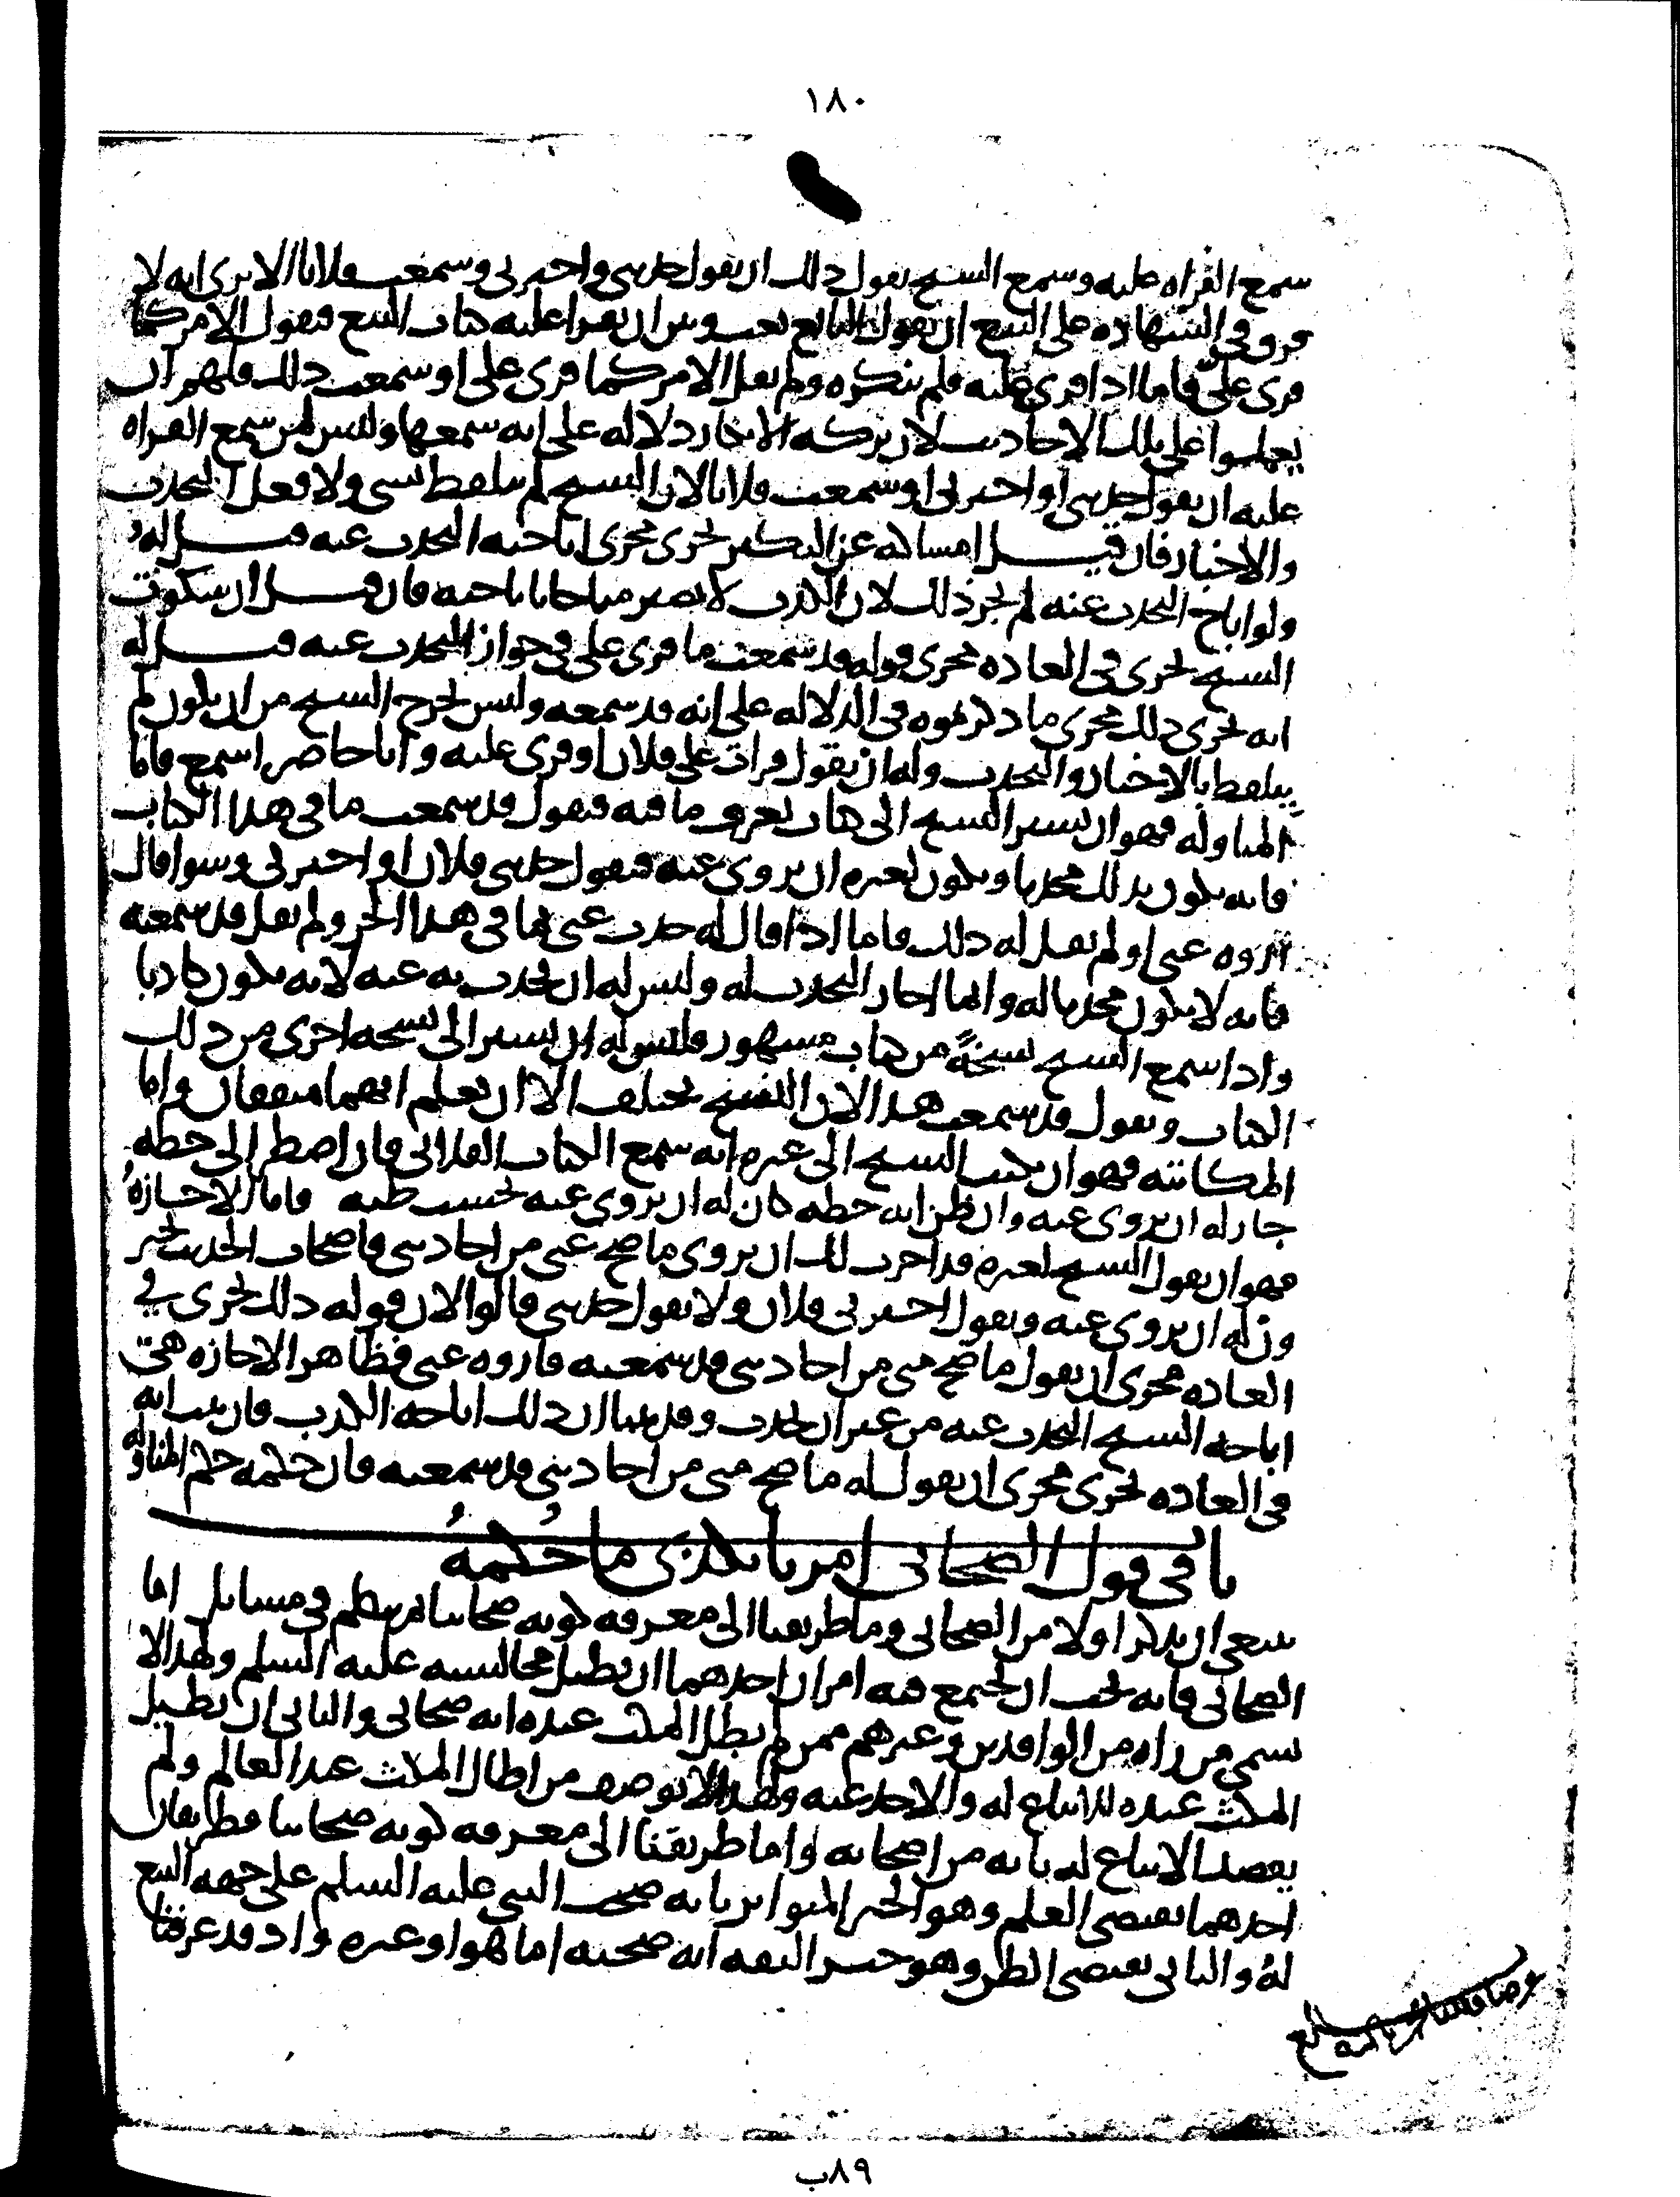 ١٨٠
سمع القراه عليه وسمع الشيخ يقول ذلك ان يقول حدثني واخبرني وسمعت فلانا الا ترى انه لا
فرق في الشهاده على البيع ان يقول البايع بعت وبين ان يقرا عليه كتاب البيع فيقول الامر كما
قرى عليّ فاما اذا قرى عليه فلم ينكره ولم يقل الامر كما قرى علي او سمعت ذلك فلهم ان
يعملوا على تلك الاحاديث لان تركه الانكار دلاله على انه سمعها وليس لمن سمع القراه
عليه ان يقول حدثني او اخبرني او سمعت فلانا لان الشيخ لم يتلفظ بشي ولا فعل التحدث
والاخبار فان قيل امساكه عن النكير يجري مجرى اباحته التحدث عنه قيل له
ولو اباح التحدث عنه لم يجز ذلك لان الكذب لا يصير مباحا باباحته فان قيل ان سكوت
الشيخ يجري في العاده مجرى قوله قد سمعت ما قرى علي في جواز التحدث عنه قيل له
انه يجري ذلك مجرى ما ذكرتموه في الدلاله على انه قد سمعه وليس يخرج الشيخ من ان يكون لم
يتلفظ بالاخبار والتحدث وله ان يقول قرات على فلان او قرى عليه وانا حاضر اسمع فاما
المناوله فهو ان يشير الشيخ الى كتاب يعرف ما فيه فيقول قد سمعت ما في هذا الكتاب
فانه يكون بذلك محدثا ويكون لغيره ان يروي عنه فيقول حدثني فلان او اخبرني وسوا قال
اروه عني او لم يقل له ذلك فاما اذا قال له حدث عني بما في هذا الجز ولم يقل قد سمعته
فانه لا يكون محدثا له وانما اجاز التحدث له وليس له ان يحدث به عنه لانه يكون كاذبا
واذا سمع الشيخ نسخةً من كتاب مشهور فليس له ان يشير الى نسخه اخرى من ذلك
الكتاب ويقول قد سمعت هذا لان النسخ تختلف الا ان يعلم انهما متفقان واما
المكاتبه فهو ان يكتب الشيخ الى غيره انه سمع الكتاب الفلاني فان اضطر الى خطه
جاز له ان يروي عنه وان ظن انه خطه كان له ان يروي عنه بحسب ظنه فاما الاجازه
فهو ان يقول الشيخ لغيره قد اجزت لك ان تروي ما صح عني من احاديثي فاصحاب الحديث يجيز
ون له ان يروي عنه ويقول اخبرني فلان ولا يقول حدثني قالوا لان قوله ذلك يجري في
العاده مجرى ان يقول ما صح مني من احاديثي قد سمعته فاروه عني فظاهر الاجازه هي
اباحه الشيخ التحدث عنه من غير ان يحدث وقد بينا ان ذلك اباحه الكذب فان ثبت انه
في العاده يجري مجرى ان يقول له ما صح مني من احاديثي قد سمعته فان حكمه حكم المناوله
باب في قول الصحابي امرنا بكذى ما حُكمهُ
ينبغي ان نذكر اولا من الصحابي وما طريقنا الى معرفه كونه صحابيا ثم نتكلم في مسايل اما
الصحابي فانه يجب ان يجتمع فيه امران احدهما ان يطيل مجالسته عليه السلم ولهذا لا
يسمى من راه من الوافدين وغيرهم ممن لم يطل المكث عنده انه صحابي والثاني ان يطيل
المكث عنده للاتباع له والاخذ عنه ولهذا لا يوصف من اطال المكث عند العالم ولم
يقصد الاتباع له بانه من اصحابه واما طريقنا الى معرفه كونه صحابيا فطريقان
احدهما يقتضي العلم وهو الخبر المتواتر بانه صحب النبي عليه السلم على جهه التبع
لهُ والثاني يقتضي الظن وهو خبر الثقه انه صحبه اما هو او غيره واذ قد عرفنا
٨٩ب